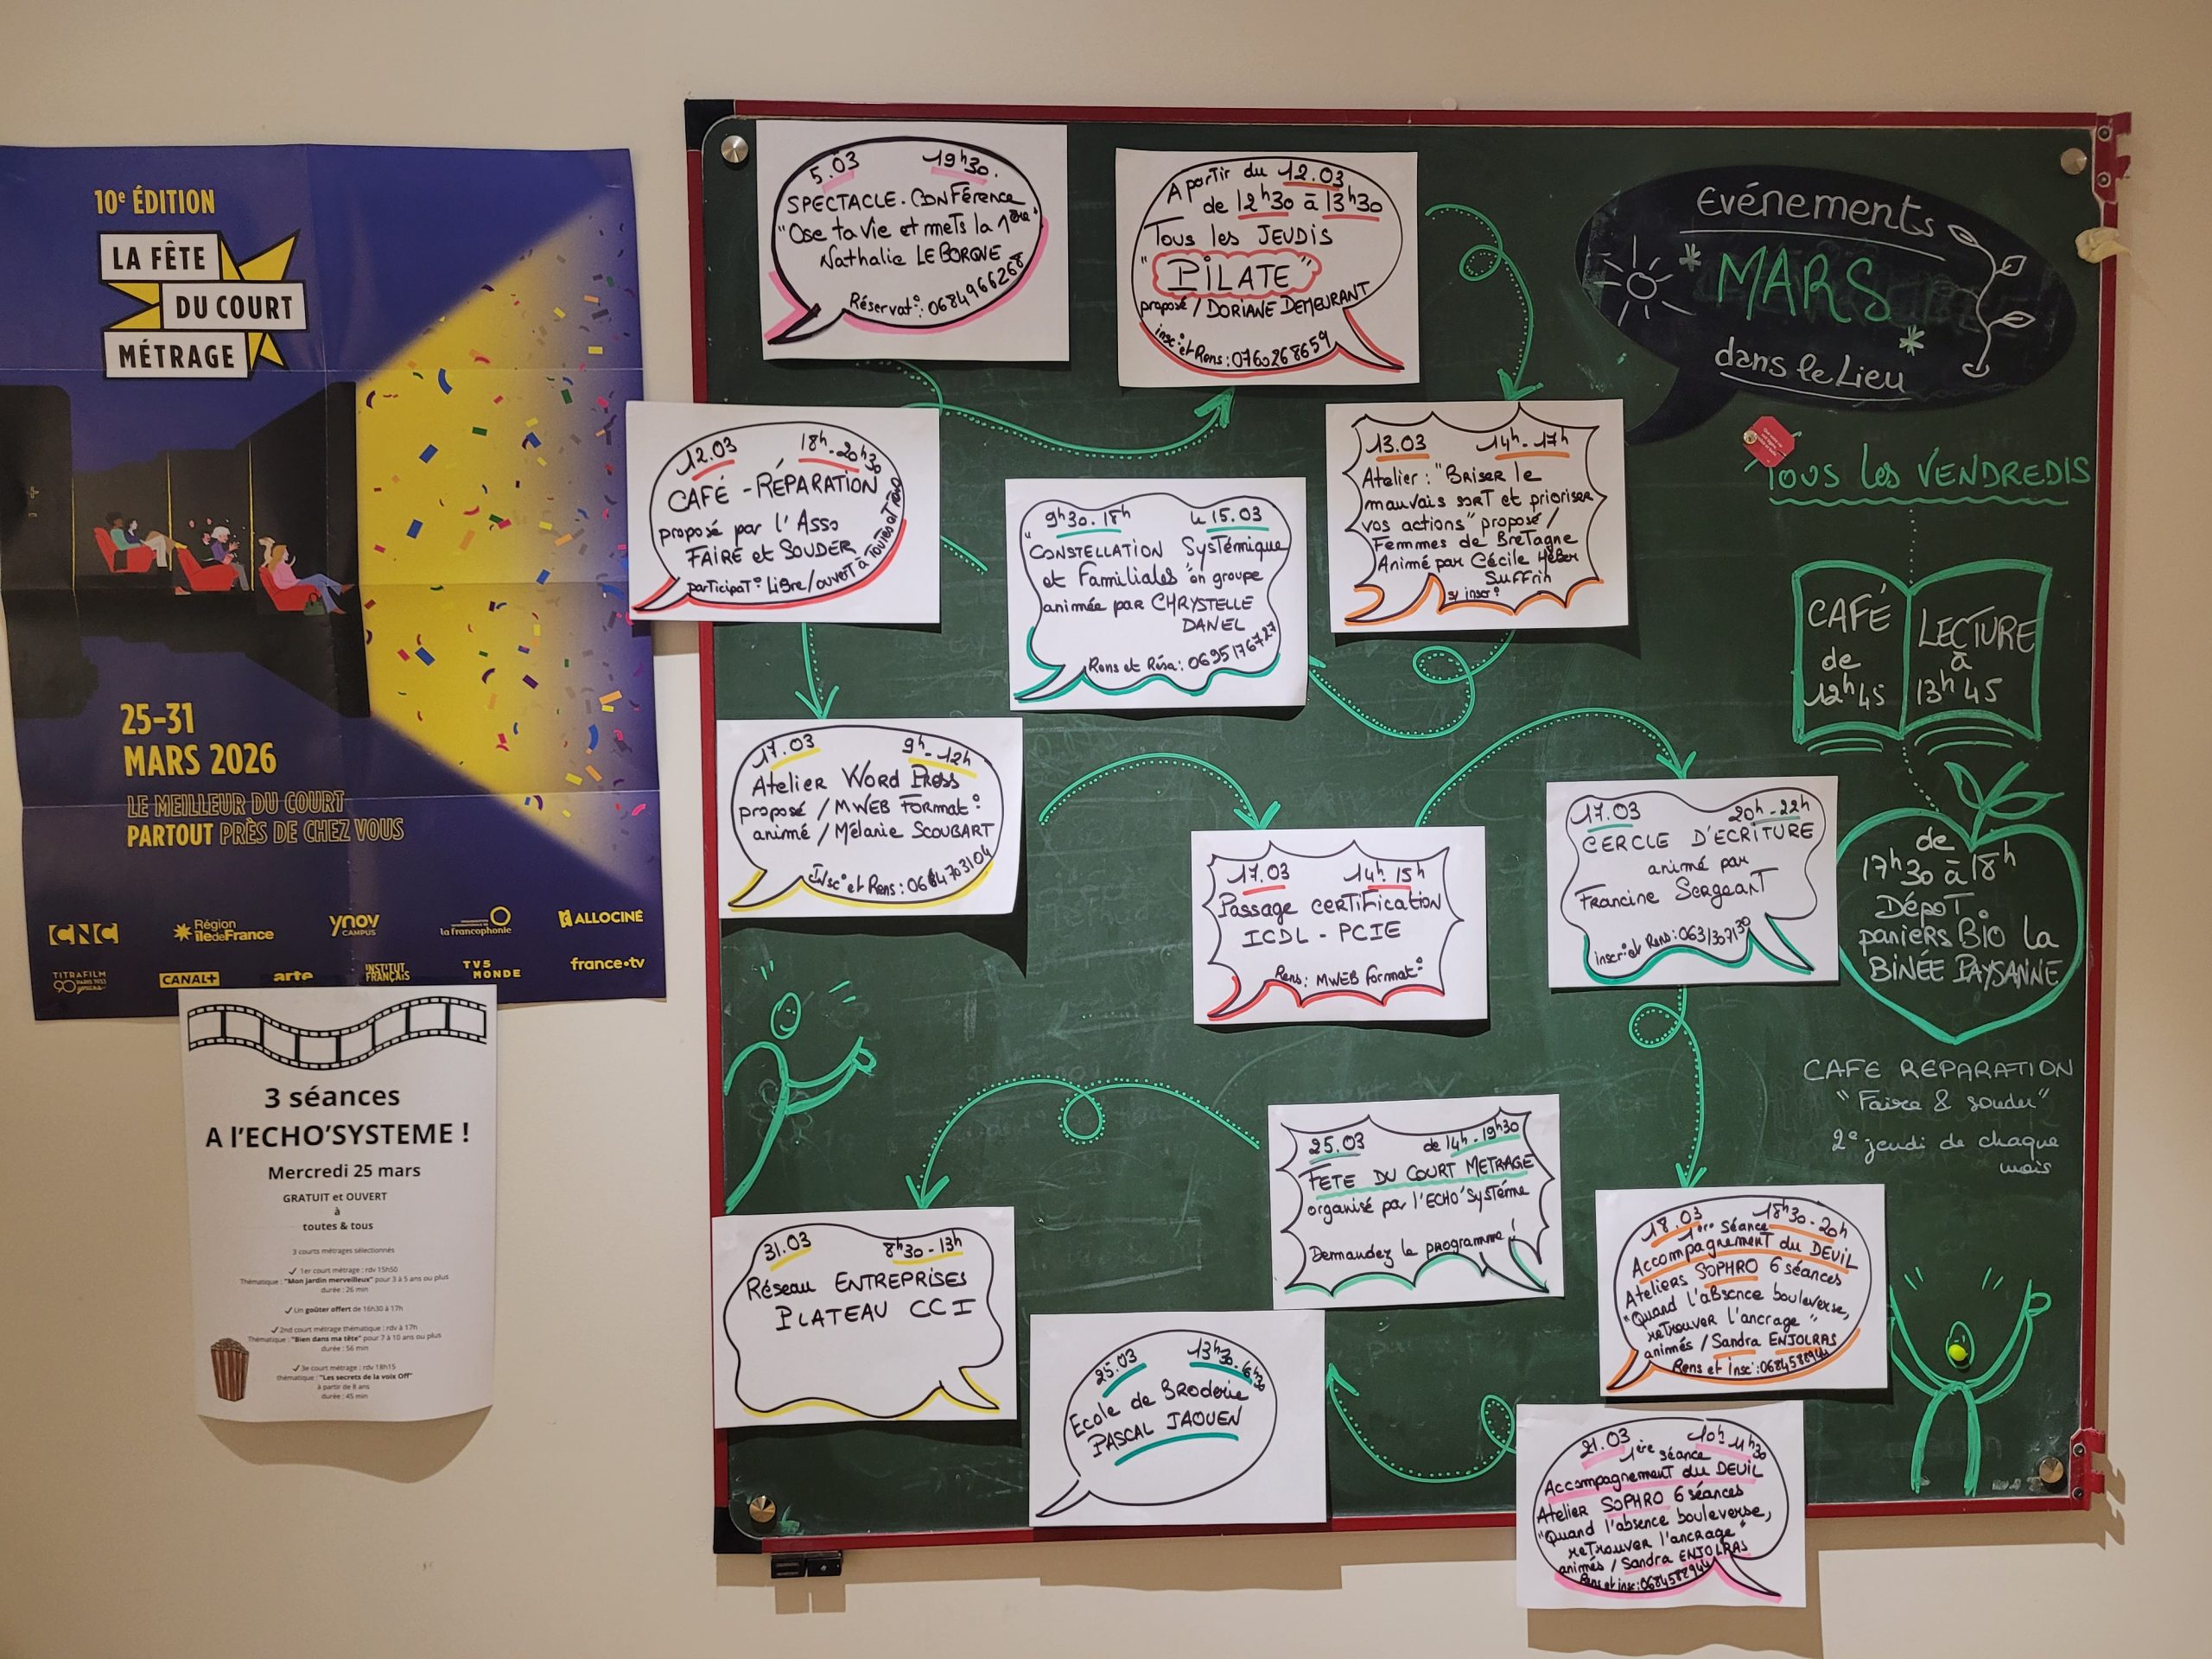 10e ÉDITION
LA FÊTE
DU COURT
MÉTRAGE
25-31
MARS 2026
LE MEILLEUR DU COURT
PARTOUT PRÈS DE CHEZ VOUS
CNC
Région
îledeFrance
ynov
CAMPUS
la francophonie
ALLOCINÉ
TITRAFILM
90
CANAL+
arte
INSTITUT
FRANÇAIS
TV5
MONDE
france•tv
3 séances
A l'ECHO'SYSTEME !
Mercredi 25 mars
GRATUIT et OUVERT
à
toutes & tous
3 courts métrages sélectionnés
✓ 1er court métrage : rdv 15h50
Thématique : "Mon jardin merveilleux" pour 3 à 5 ans ou plus
durée : 26 min
✓ Un goûter offert de 16h30 à 17h
✓ 2nd court métrage thématique : rdv à 17h
Thématique : "Bien dans ma tête" pour 7 à 10 ans ou plus
durée : 56 min
✓ 3e court métrage : rdv 18h15
thématique : "Les secrets de la voix Off"
à partir de 8 ans
durée : 45 min
Evénements
* MARS *
dans le Lieu
5.03 19h30.
SPECTACLE. CONFérence
"Ose ta vie et mets la 1ère"
Nathalie LE BORGNE
Réservat°: 0684966268
A partir du 12.03
de 12h30 à 13h30
Tous les JEUDIS
"PILATE"
proposé / DORIANE DEMEURANT
insc° et Rens : 0760268659
12.03 18h-20h30
CAFÉ - RÉPARATION
proposé par l'Asso
FAIRE et SOUDER
participat° Libre/ouvert à toutes et tous
9h30.18h le 15.03
"CONSTELLATION Systémique
et Familiales" en groupe
animée par CHRYSTELLE
DANEL
Rens et Résa : 0695176727
13.03 14h-17h
Atelier : "Briser le
mauvais sort et prioriser
vos actions" proposé /
Femmes de Bretagne
Animé par Cécile Héber
Suffrin
s/ inscr°
TOUS les VENDREDIS
CAFÉ
de
12h45
LECTURE
à
13h45
de
17h30 à 18h
Dépot
paniers BIO la
BINÉE PAYSANNE
CAFE REPARATION
"Faire & souder"
2e jeudi de chaque
mois
17.03 9h-12h
Atelier Word Press
proposé / MWEB Format°
animé / Mélanie SCOUBART
Insc° et Rens : 0684703104
17.03 14h.15h
Passage CERTIFication
ICDL - PCIE
Rens : MWEB Format°
17.03 20h-22h
CERCLE D'ECRITURE
animé par
Francine SergeanT
inscr et Rens : 0631307130
18.03 18h30-20h
1ère séance
Accompagnement du DEUIL
Ateliers SOPHRO 6 séances
"Quand l'absence bouleverse,
reTrouver l'ancrage"
animés / Sandra ENJOLRAS
Rens et insc : 0684588944
25.03 de 14h-19h30
FETE DU COURT METRAGE
organisé par l'ECHO'Système
Demandez le programme !
31.03 8h30-13h
Réseau ENTREPRISES
PLATEAU CCI
25.03 13h30.16h30
Ecole de Broderie
PASCAL JAOUEN
21.03 10h-11h30
1ère séance
Accompagnement du DEUIL
Atelier SOPHRO 6 séances
"Quand l'absence bouleverse,
reTrouver l'ancrage"
animés / Sandra ENJOLRAS
Rens et insc : 0684588944